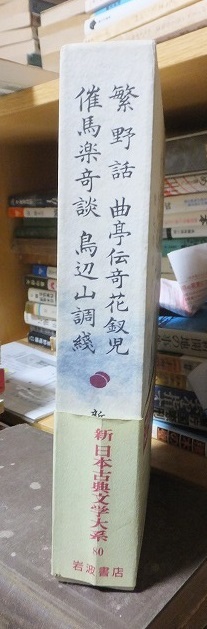 繁野話 曲亭伝奇花釵児
催馬楽奇談 鳥辺山調綫
新
新 日本古典文学大系 80
岩波書店